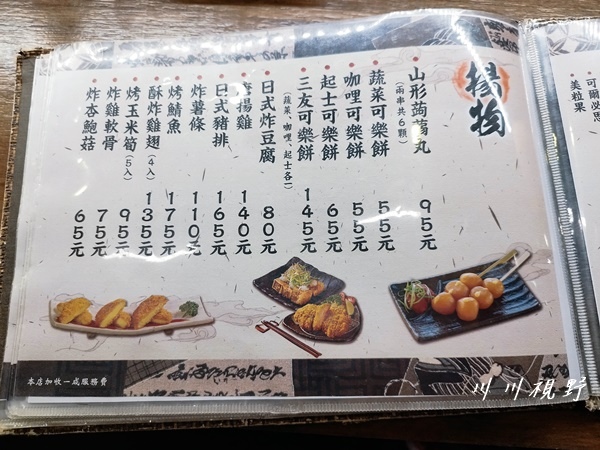 揚物
山形蒟蒻丸 95元
(兩串共6顆)
蔬菜可樂餅 55元
咖哩可樂餅 55元
起士可樂餅 65元
三友可樂餅 145元
(蔬菜、咖哩、起士各一)
日式炸豆腐 80元
唐揚雞 140元
日式豬排 165元
炸薯條 110元
烤鯖魚 175元
酥炸雞翅(4入) 135元
烤玉米筍(5入) 95元
炸雞軟骨 75元
炸杏鮑菇 65元
本店加收一成服務費
可爾必思
美粒果
川川視野